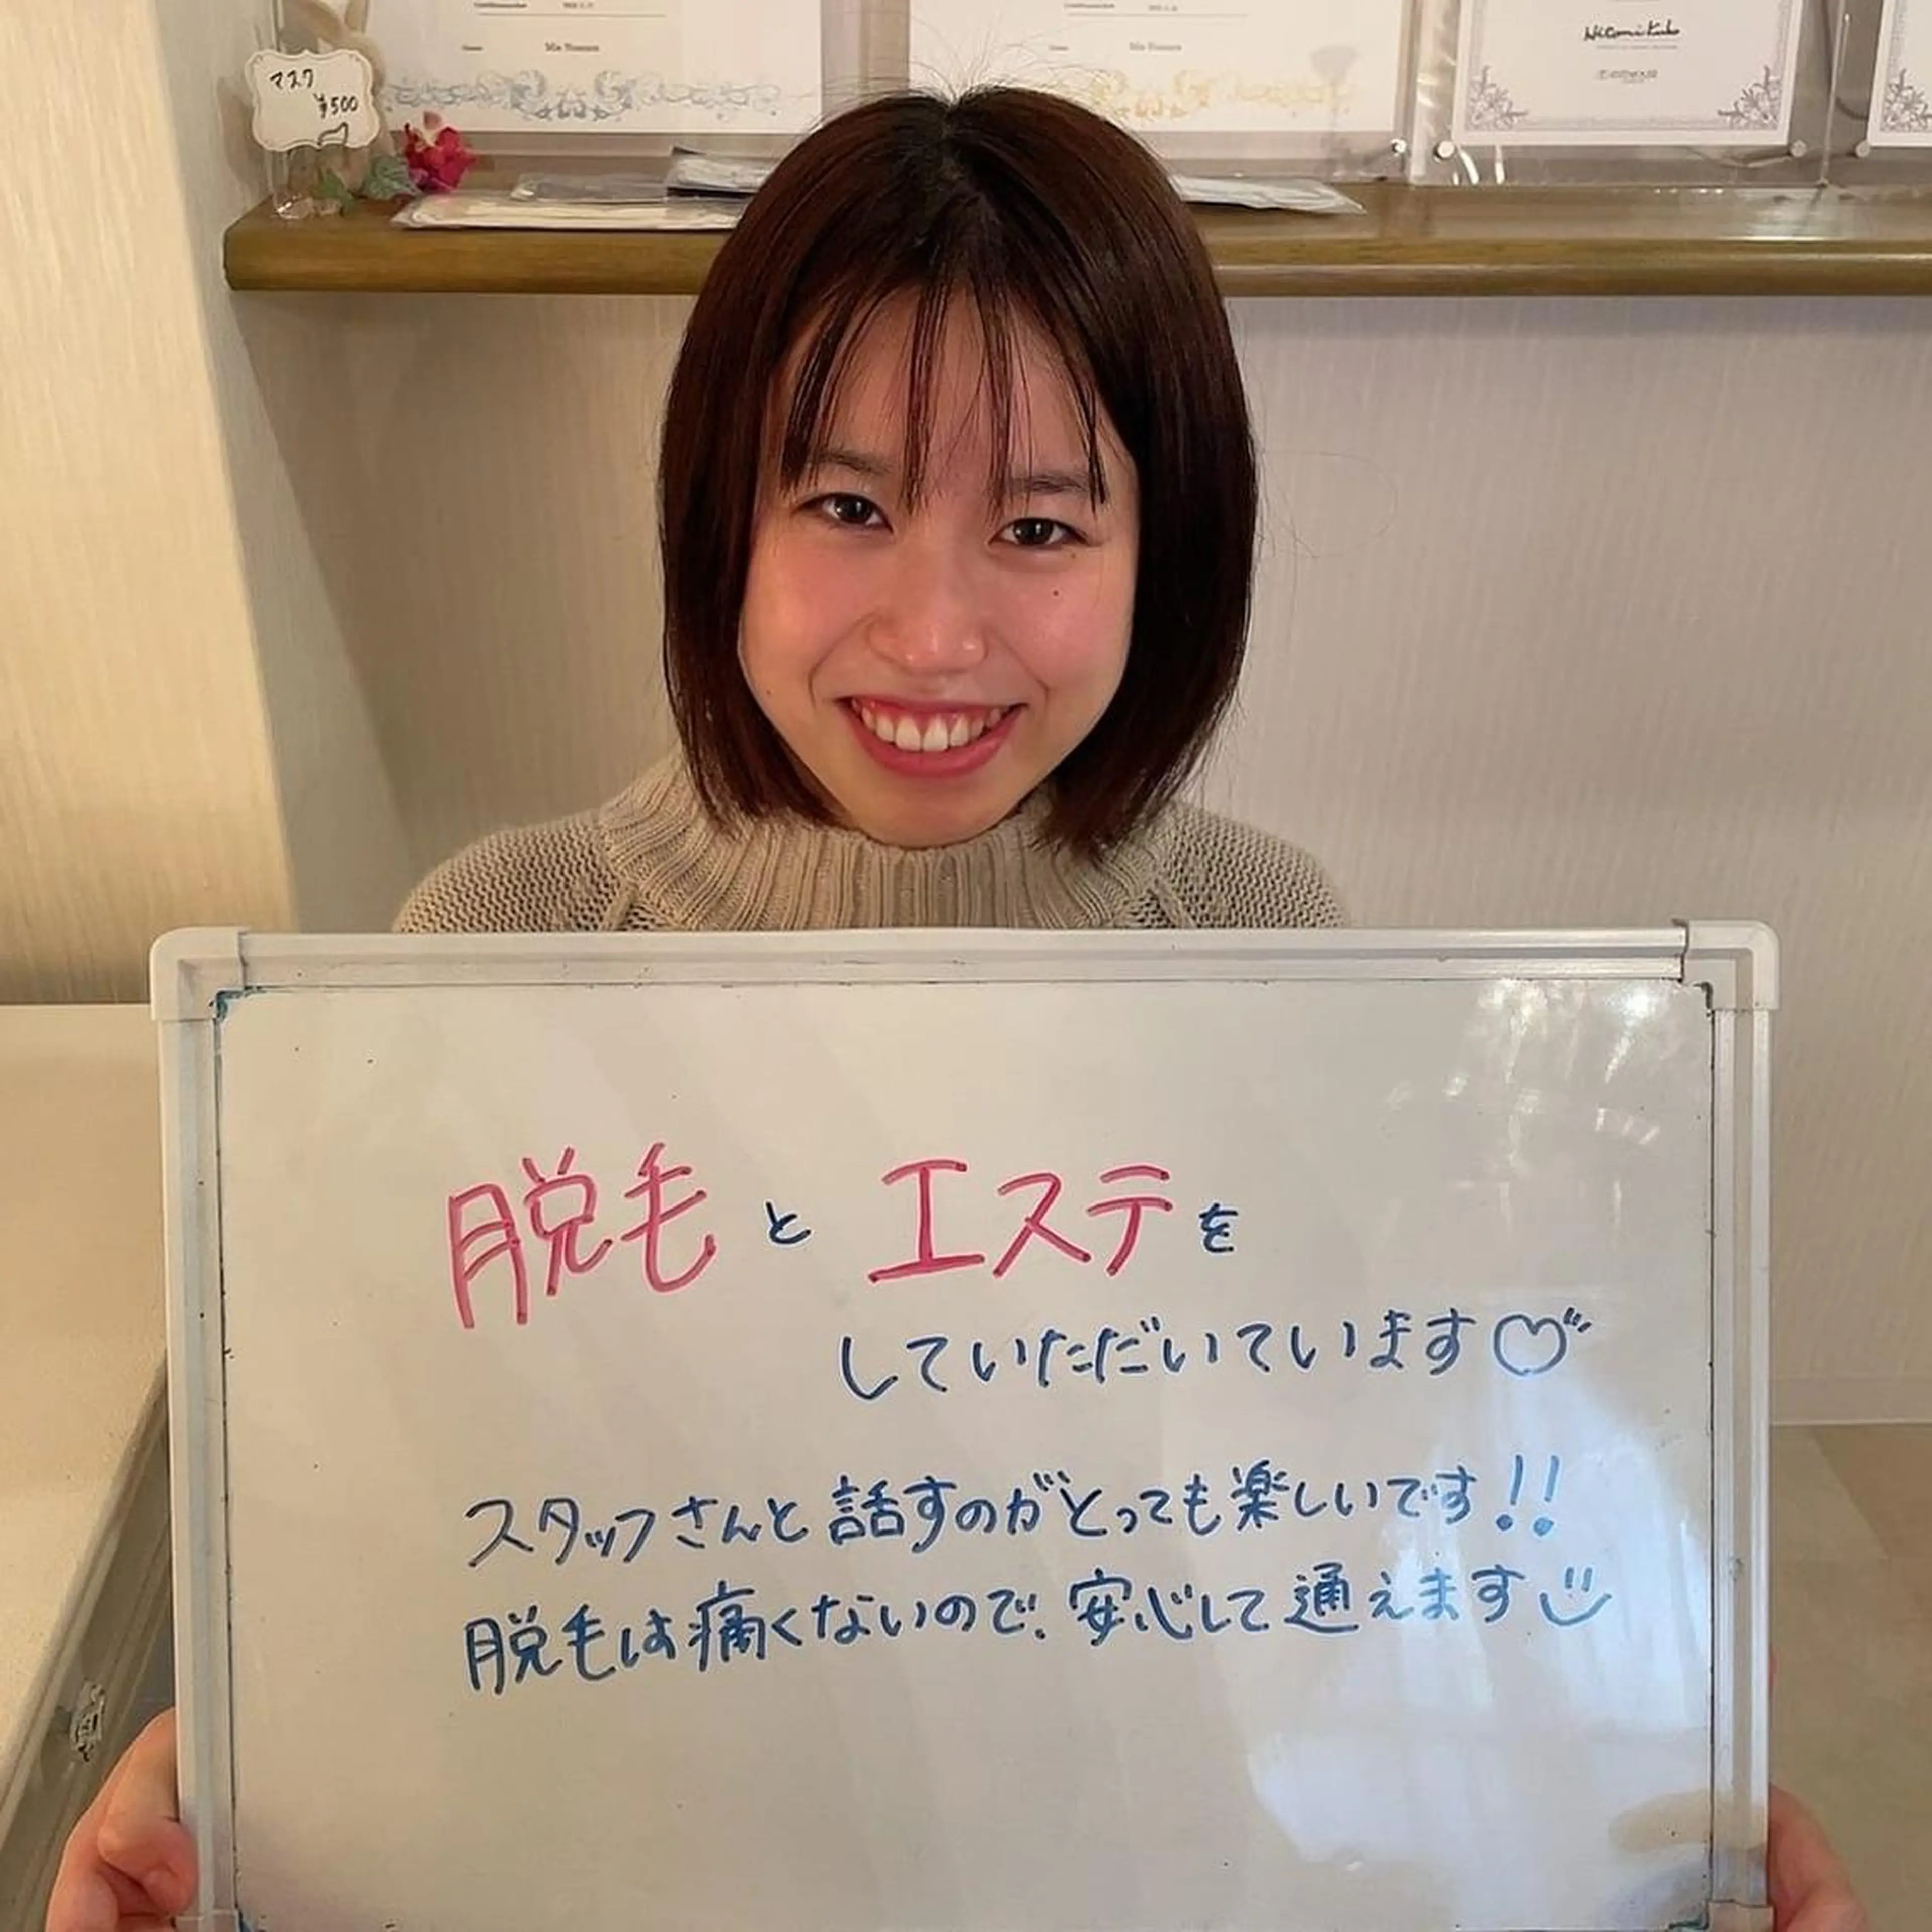 マスク
¥500
Hitomi Kubo
脱毛とエステを
していただいています♡
スタッフさんと話すのがとっても楽しいです!!
脱毛は痛くないので、安心して通えます